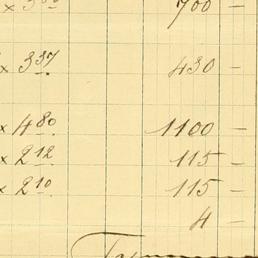 700 –
x 3 37 430 –
x 4 80 1100 –
x 2 12 115 –
x 2 10 115 –
4 –